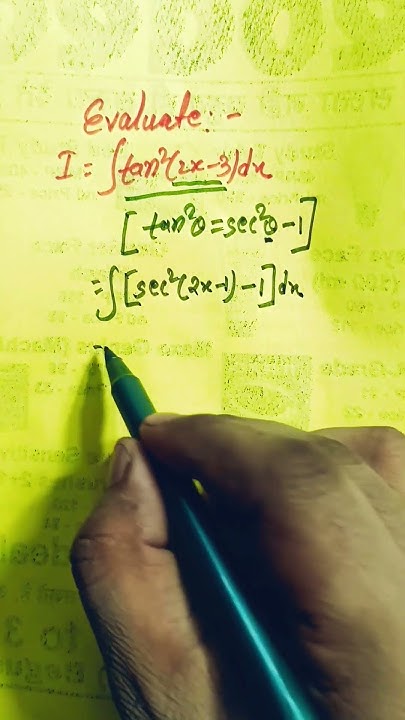 Evaluate :-
I = ∫tan²(2x-3)dx
[tan²θ = sec²θ - 1]
= ∫[sec²(2x-1) - 1]dx